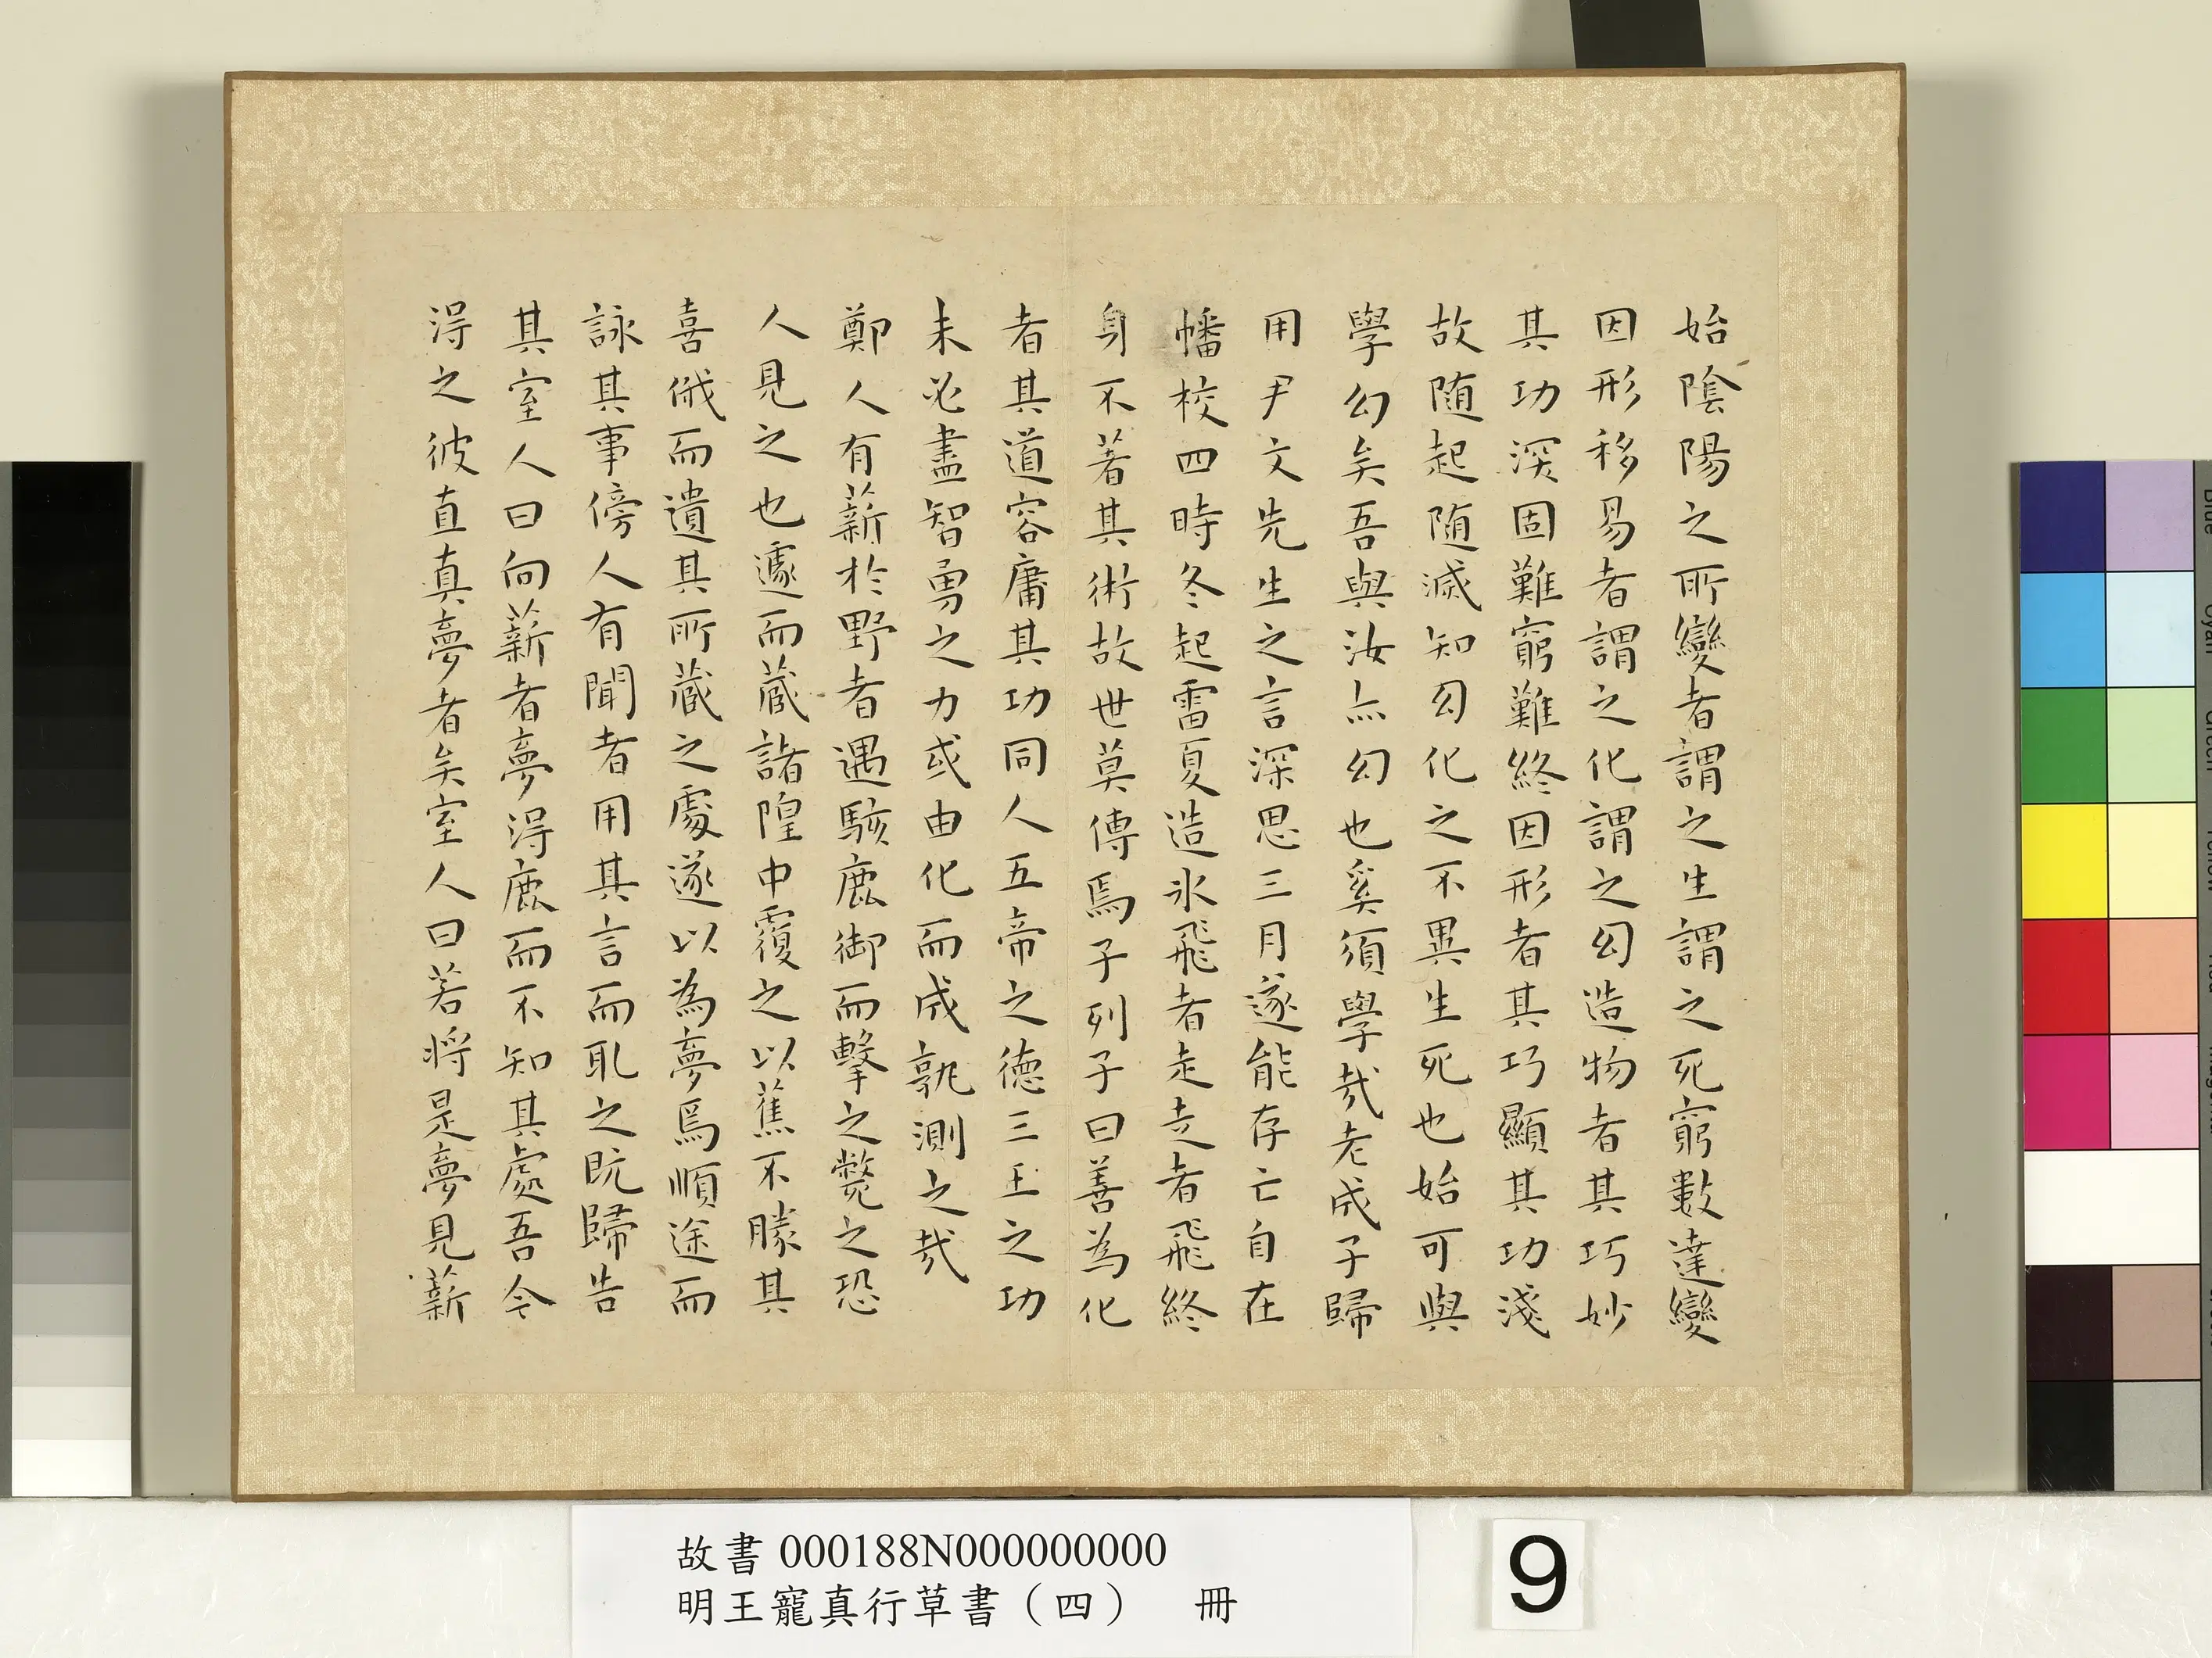 始陰陽之所變者謂之生謂之死窮數達變
因形移易者謂之化謂之幻造物者其巧妙
其功深固難窮難終因形者其巧顯其功淺
故随起随滅知幻化之不異生死也始可與
學幻矣吾與汝亦幻也奚須學哉老成子歸
用尹文先生之言深思三月遂能存亡自在
幡校四時冬起雷夏造氷飛者走走者飛終
身不著其術故世莫傳焉子列子曰善為化
者其道容庸其功同人五帝之德三王之功
未必盡智勇之力或由化而成孰測之哉
鄭人有薪於野者遇駭鹿御而擊之斃之恐
人見之也遽而蔵諸隍中覆之以蕉不勝其
喜俄而遺其所蔵之處遂以為夢焉順途而
詠其事傍人有聞者用其言而取之既歸告
其室人曰向薪者夢得鹿而不知其處吾今
得之彼直真夢者矣室人曰若将是夢見薪
故書 000188N000000000
明王寵真行草書（四） 冊
9
Blue
Cyan
Green
Yellow
Red
Magenta